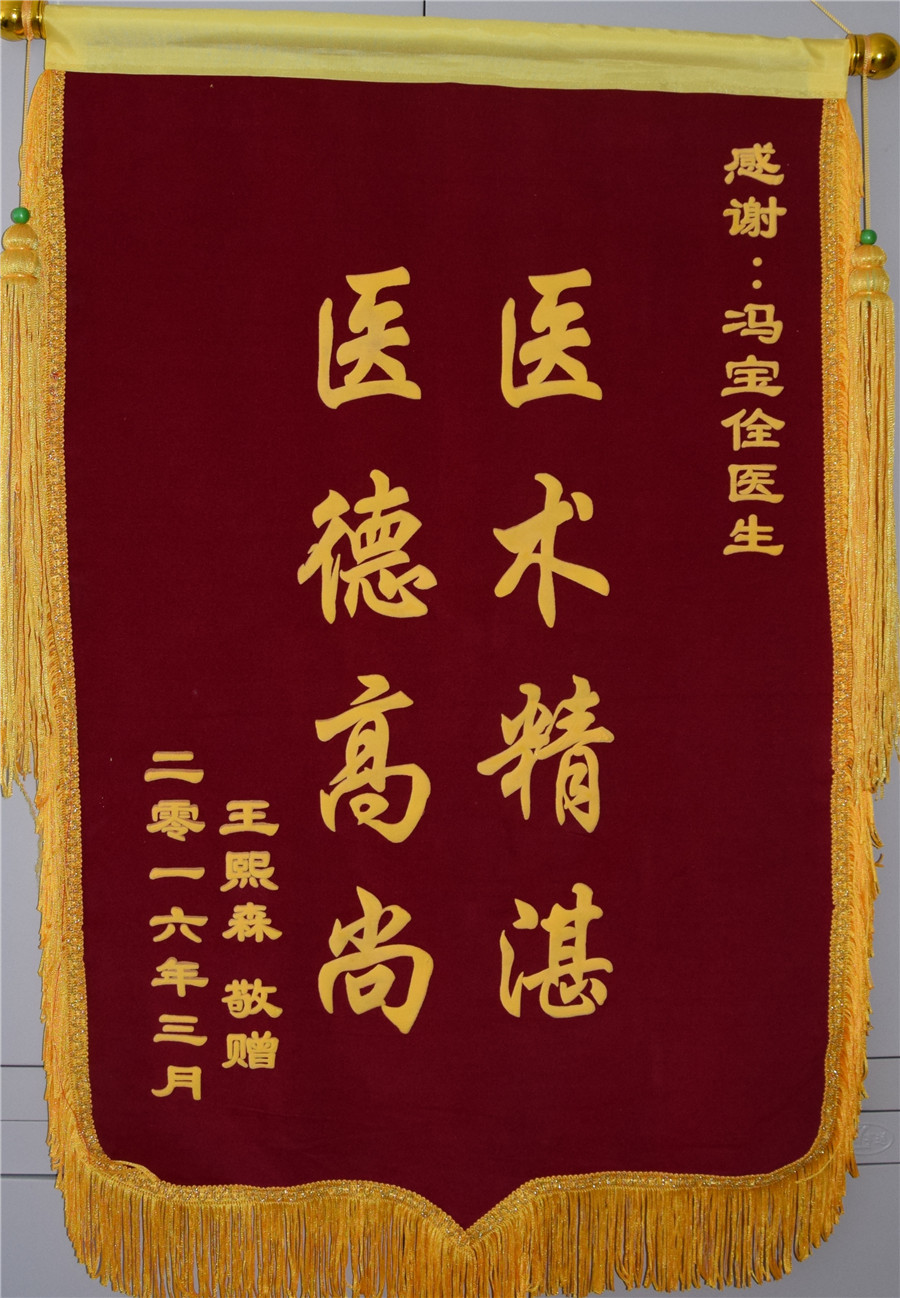 感谢：冯宝佺医生
医术精湛
医德高尚
王熙森 敬赠
二零一六年三月